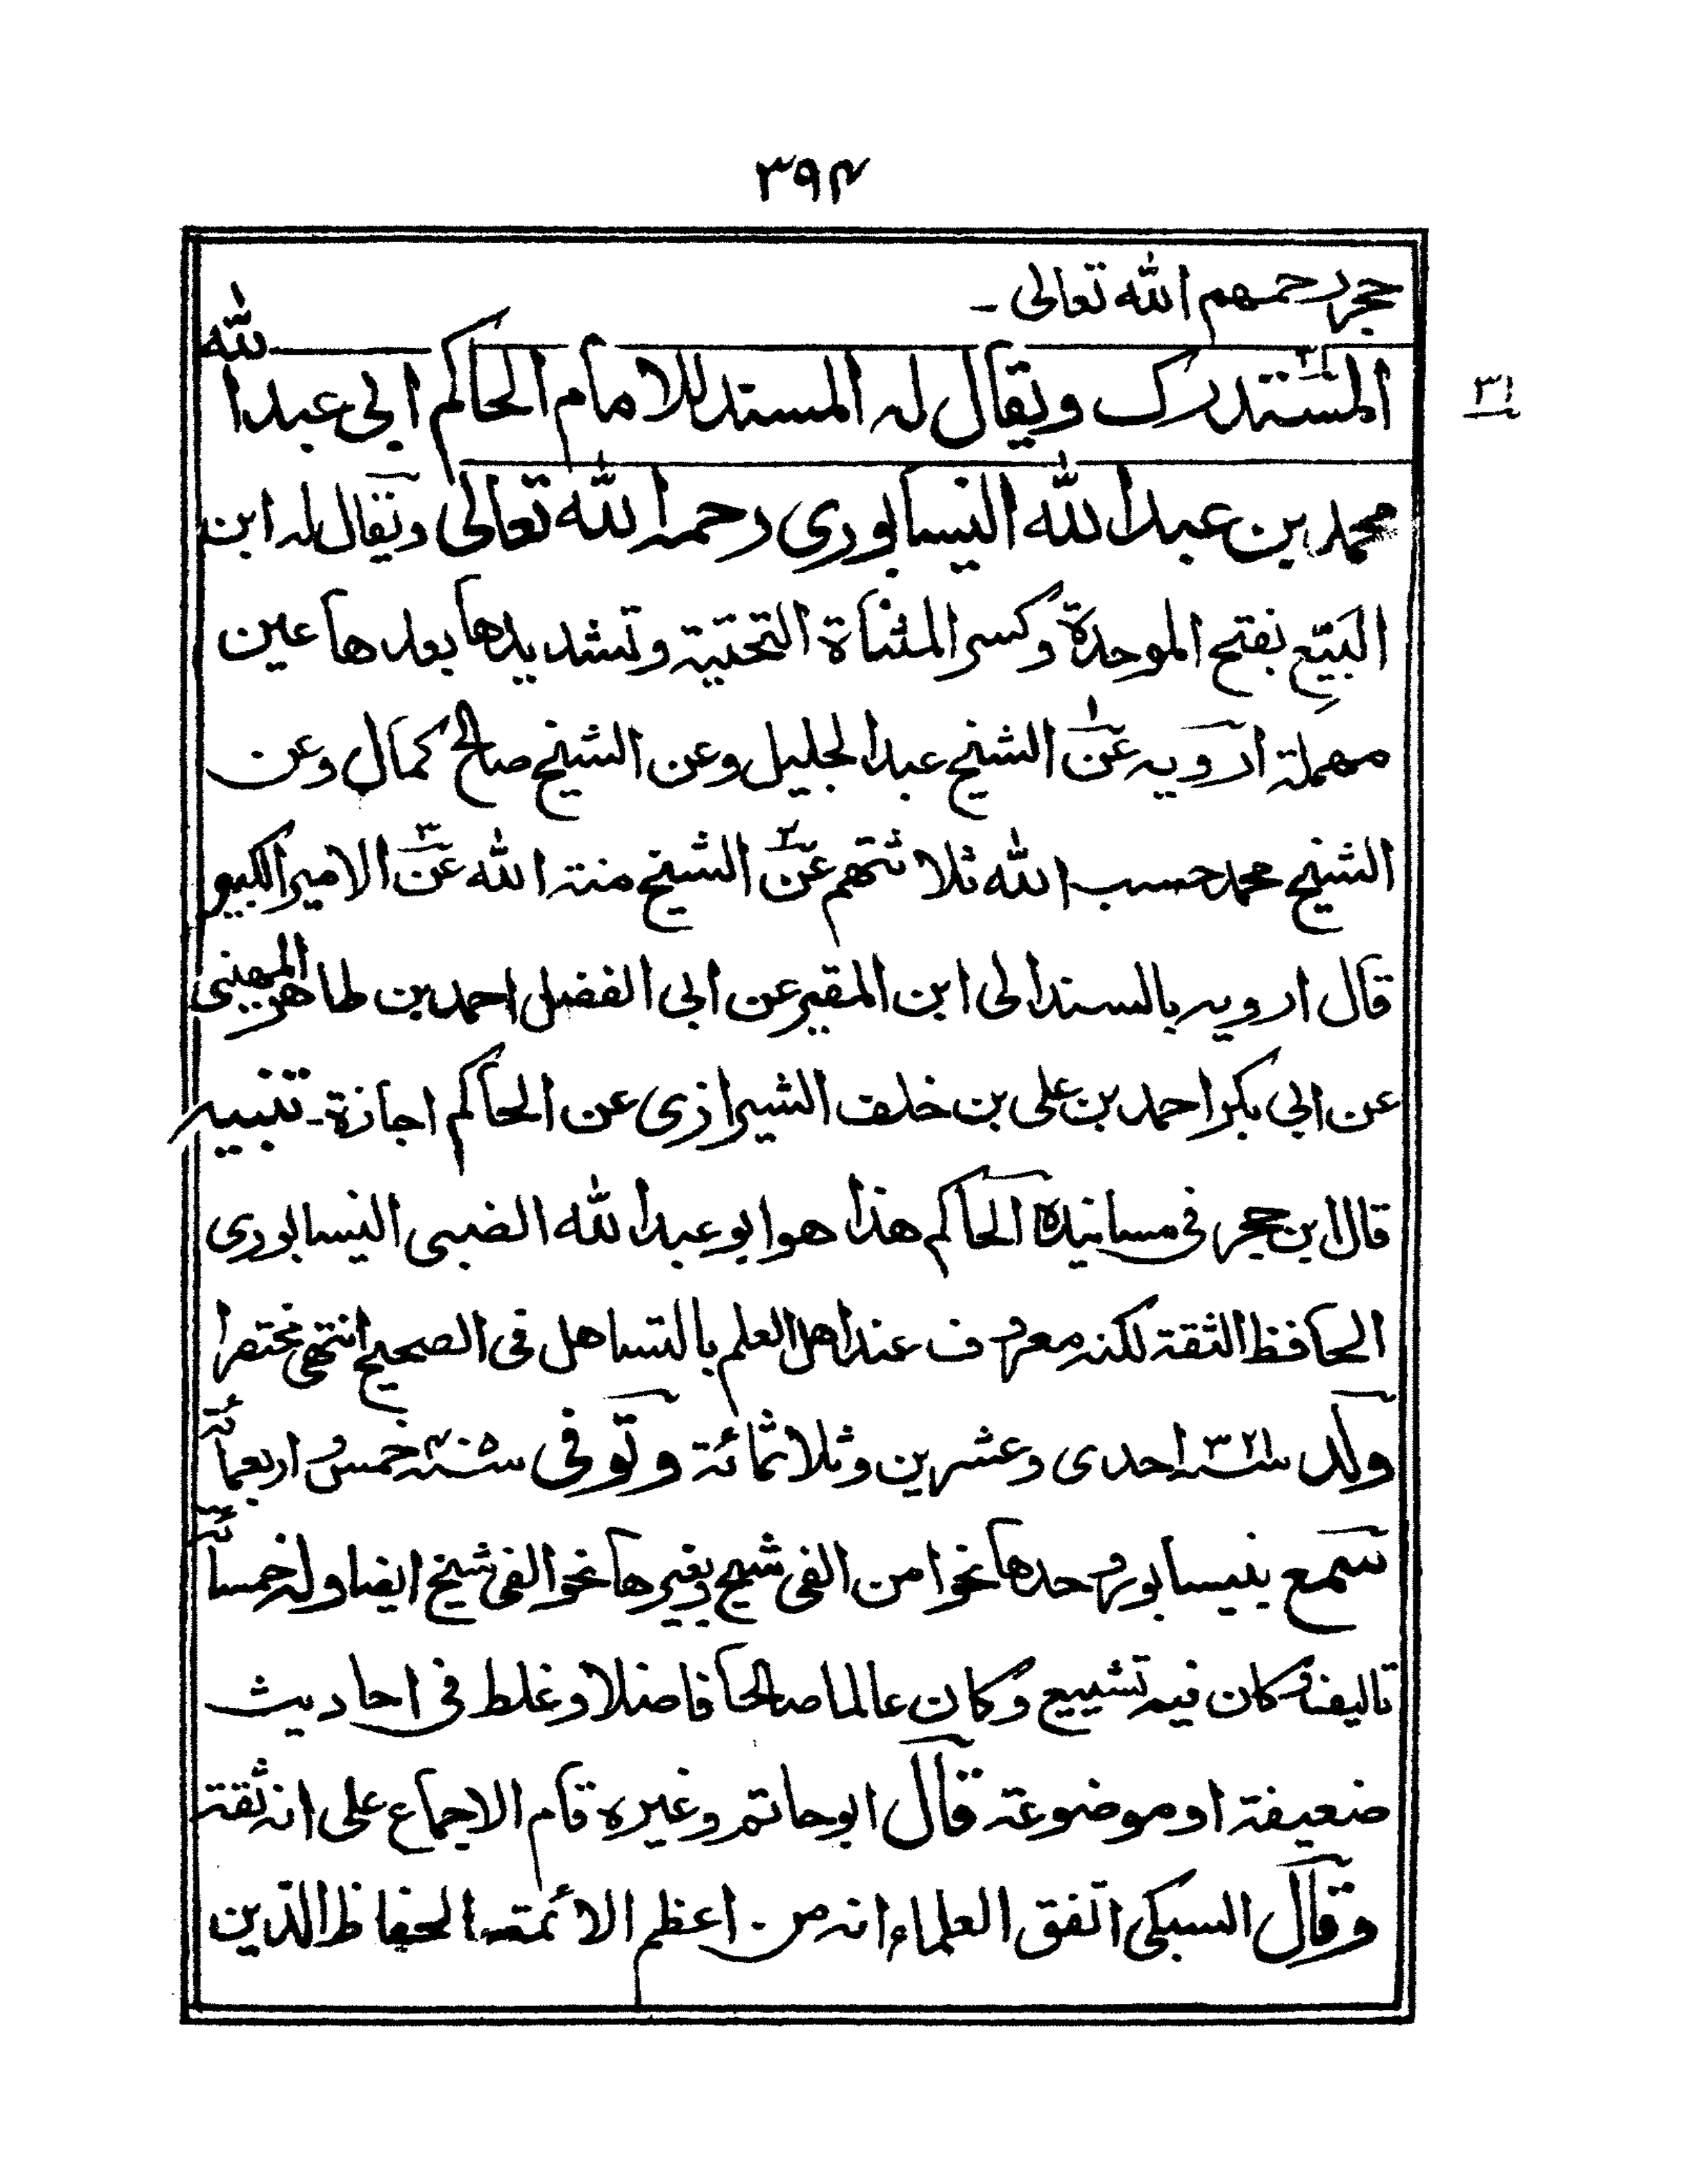 ٣٩٤
حجر رحمهم الله تعالى -
٣١
المستدرك ويقال له المسند للامام الحاكم ابى عبد الله
محمد بن عبد الله النيسابورى رحمه الله تعالى ويقال له ابن
البَيِّع بفتح الموحدة وكسر المثناة التحتية وتشديدها بعدها عين
مهملة ارويه عن الشيخ عبد الجليل وعن الشيخ صالح كمال وعن
الشيخ محمد حسب الله ثلاثتهم عن الشيخ منة الله عن الامير الكبير
قال ارويه بالسند الى ابن المقير عن ابى الفضل احمد بن طاهر الميهنى
عن ابى بكر احمد بن على بن خلف الشيرازى عن الحاكم اجازة - تنبيه
قال ابن حجر فى مسانيده الحاكم هذا هو ابو عبد الله الضبى النيسابورى
الحافظ الثقة لكنه معروف عند اهل العلم بالتساهل فى الصحيح انتهى مختصرا
ولد سنة ٣٢١ احدى وعشرين وثلاثمائة وتوفى سنة ٤٠٥ خمس واربعمائة
سمع بنيسابور وحدها نحوا من الفى شيخ وبغيرها نحو الفى شيخ ايضا وله خمسمائة
تاليف وكان فيه تشييع وكان عالما صالحا فاضلا وغلط فى احاديث
ضعيفة او موضوعة قال ابو حاتم وغيره قام الاجماع على انه ثقة
وقال السبكى اتفق العلماء انه من اعظم الائمة الحفاظ الذين